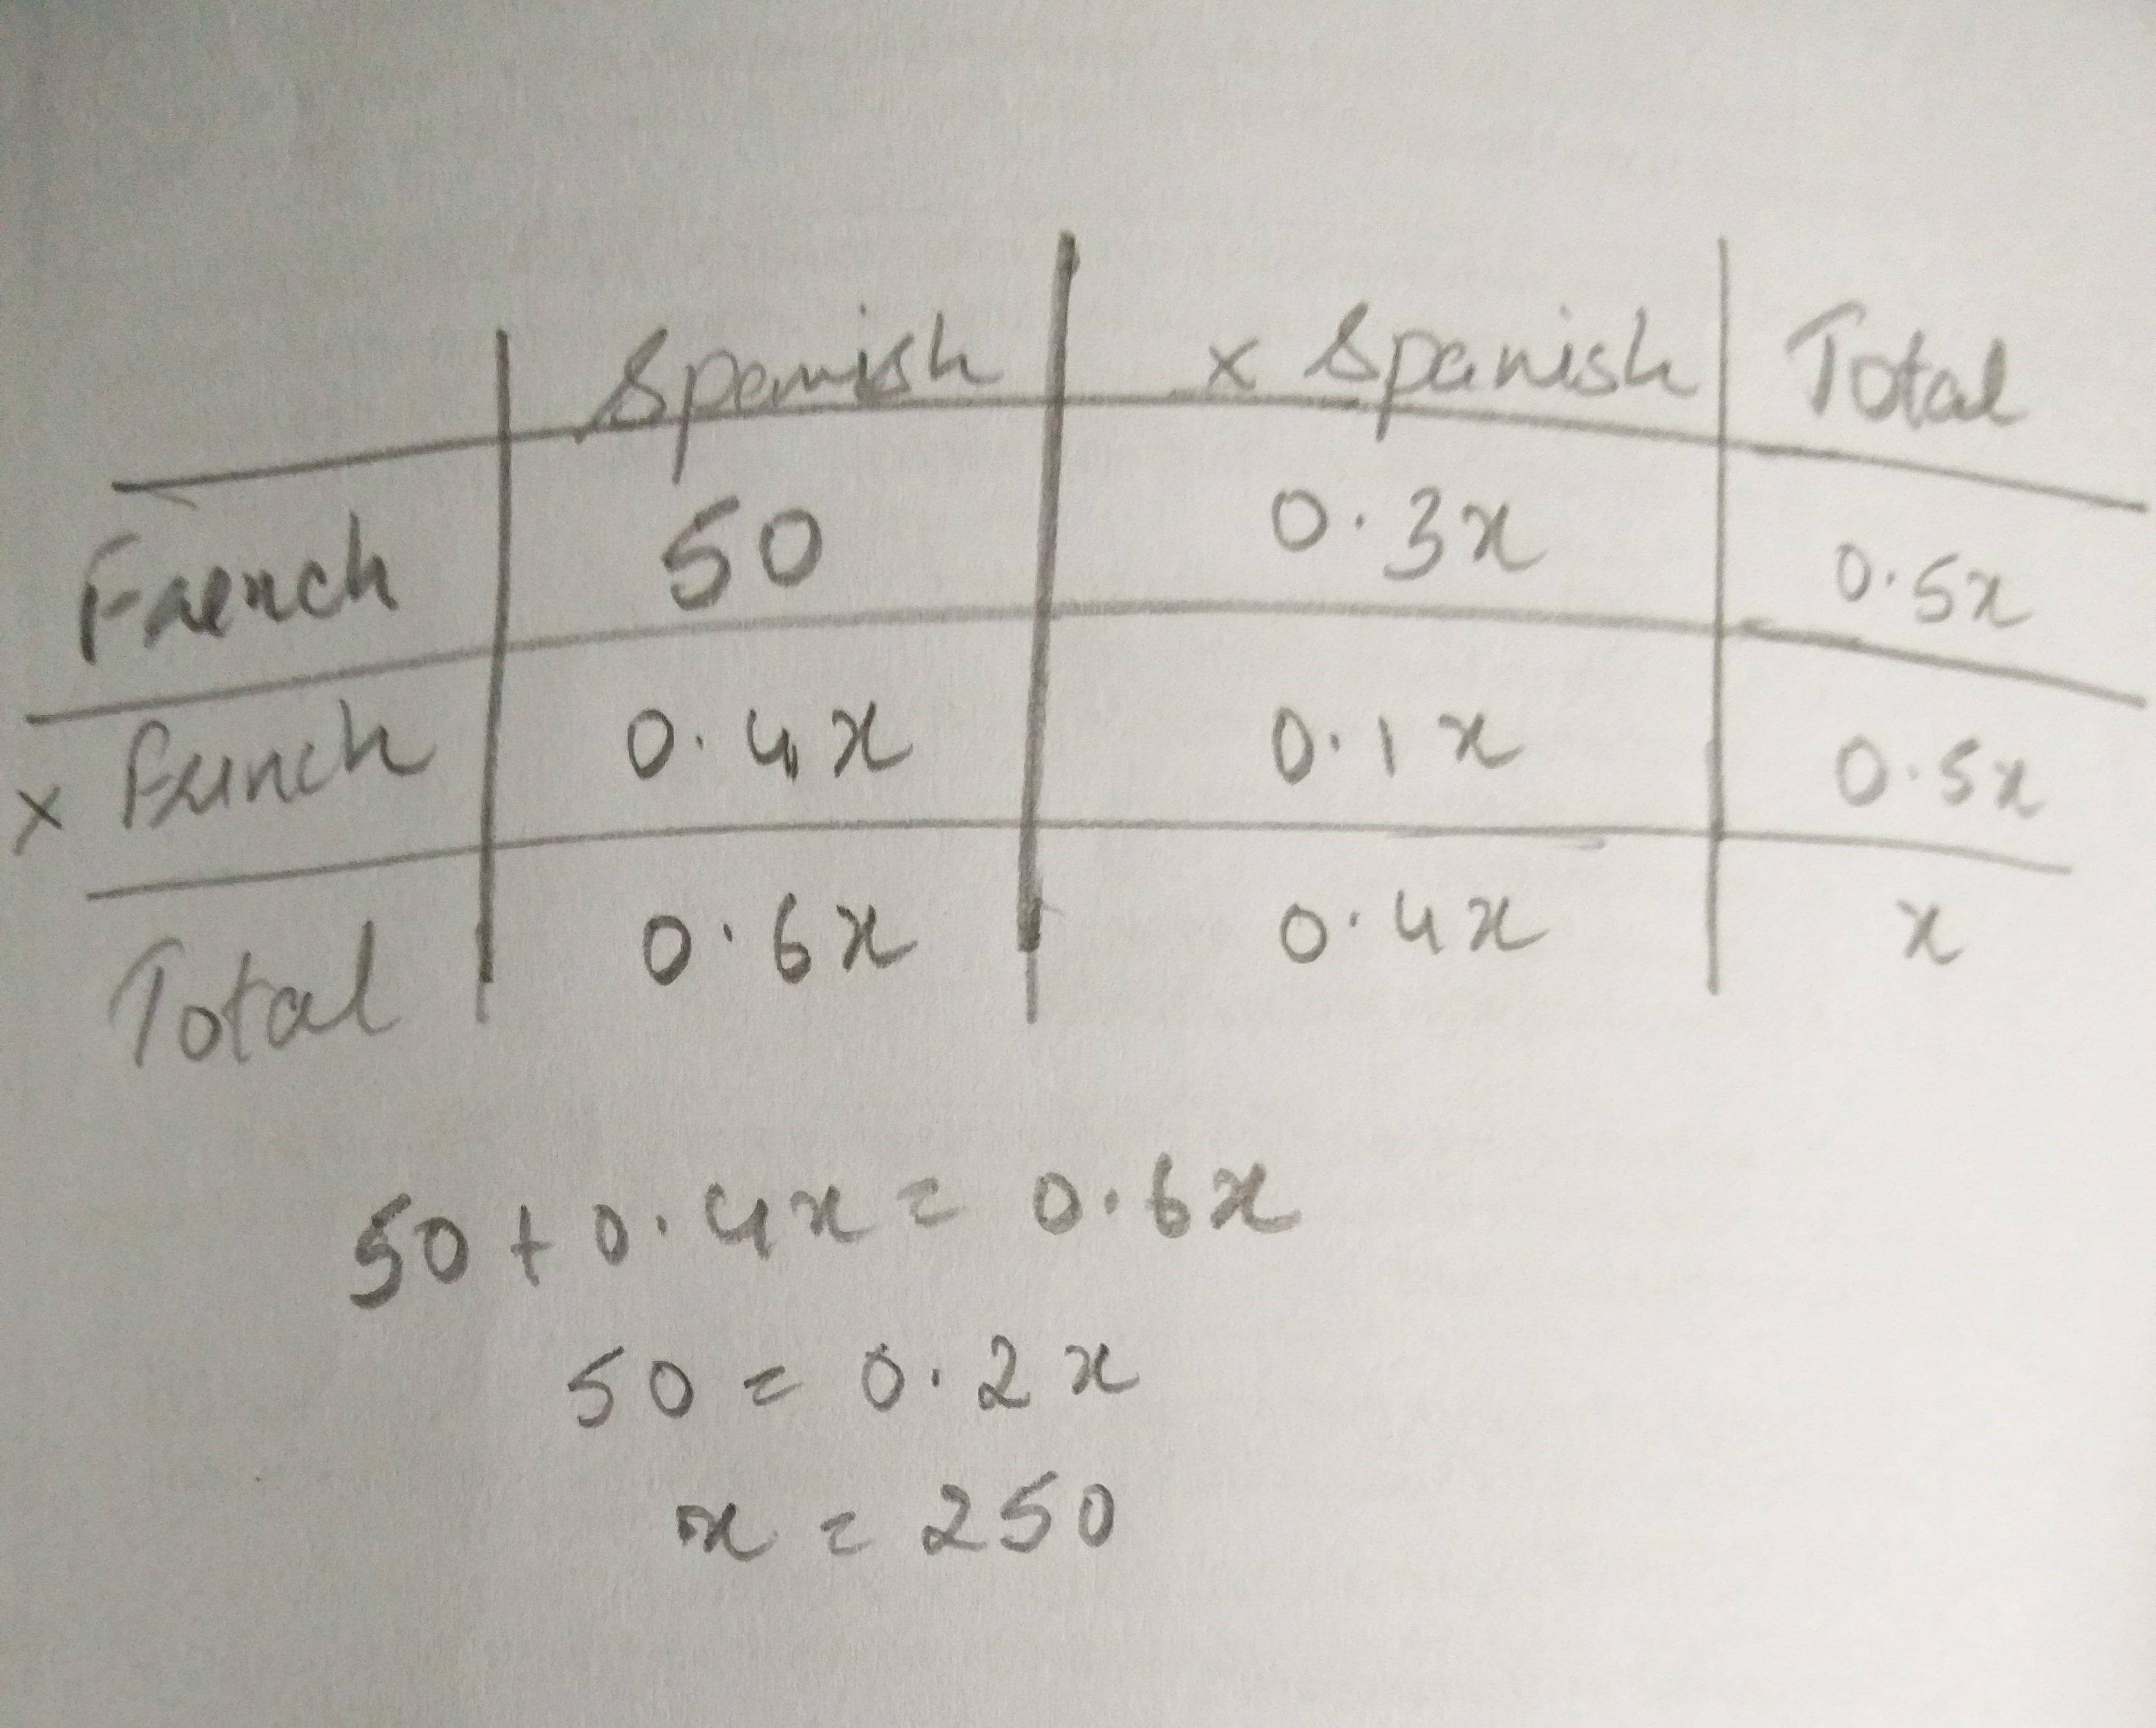 Spanish x Spanish Total
French 50 0.3x 0.5x
x French 0.4x 0.1x 0.5x
Total 0.6x 0.4x x
50 + 0.4x = 0.6x
50 = 0.2x
x = 250